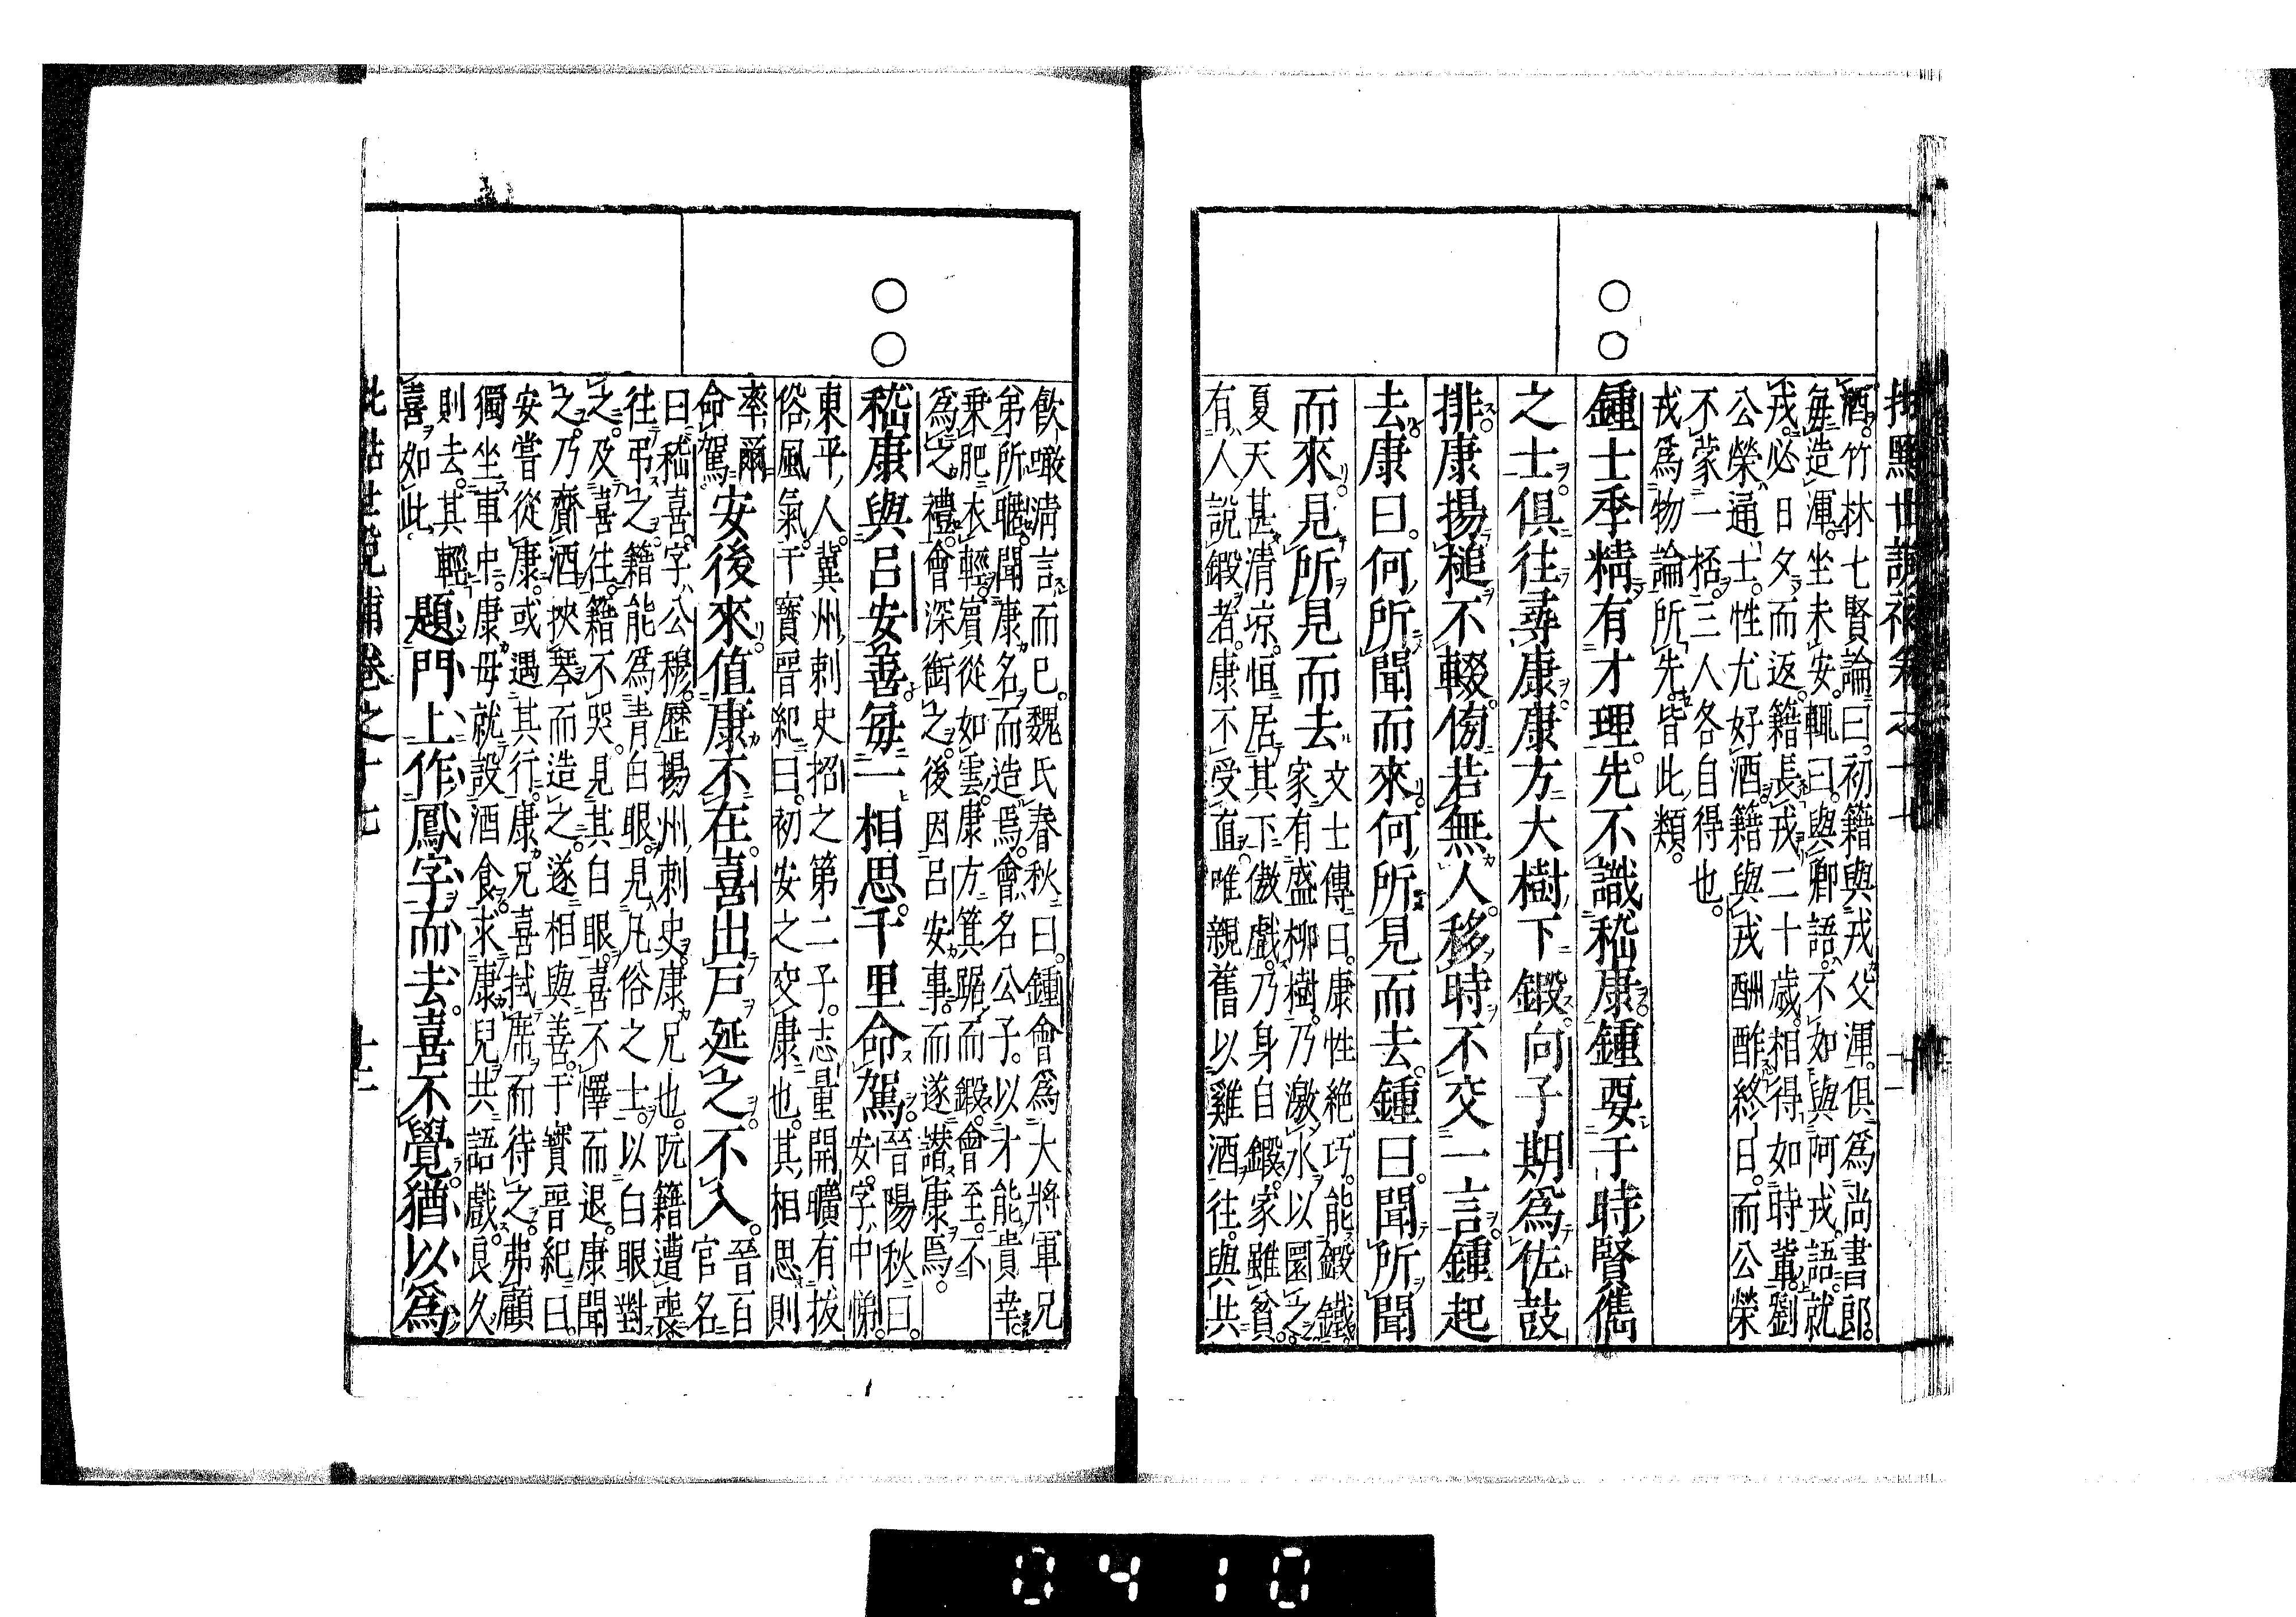 批點世說補卷之十七
酒。竹林七賢論曰。初籍與戎父渾。俱爲尚書郎。
每造渾。坐未安。輒曰。與卿語。不如與阿戎語。就
戎。必日夕而返。籍長戎二十歲。相得如時輩。劉
公榮通士。性尤好酒。籍與戎酬酢終日。而公榮
不蒙一桮。三人各自得也。
戎爲物論所先。皆此類。
鍾士季精有才理。先不識嵇康。鍾要于時賢儁
之士俱往尋康。康方大樹下鍛。向子期爲佐鼓
排。康揚槌不輟。傍若無人。移時不交一言。鍾起
去。康曰。何所聞而來。何所見而去。鍾曰。聞所聞
而來。見所見而去
文士傳曰。康性絕巧。能鍛鐵。
家有盛柳樹。乃激水以圜之。
夏天甚清涼。恒居其下傲戲。乃身自鍛。家雖貧。
有人說鍛者。康不受直。唯親舊以雞酒往。與共
飮噉清言而已。魏氏春秋曰。鍾會爲大將軍兄
弟所暱。聞康名而造焉。會名公子。以才能貴幸。
乗肥衣輕。賓從如雲。康方箕踞而鍛。會至。不
爲之禮。會深銜之。後因呂安事。而遂譖康焉。
嵇康與呂安善。每一相思。千里命駕。
晉陽秋曰。
安字中悌。
東平人。冀州刺史招之第二子。志量開曠。有拔
俗風氣。干寶晉紀曰。初安之交康也。其相思則
率爾
命駕
安後來値康不在。喜出戸延之。不入。
晉百
官名
曰嵇喜字公穆。歷揚州刺史。康兄也。阮籍遭喪
往弔之。籍能爲青白眼。見凡俗之士。以白眼對
之。及喜往。籍不哭。見其白眼。喜不懌而退。康聞
之。乃齎酒挾琴而造之。遂相與善。干寶晉紀曰。
安嘗從康。或遇其行。康兄喜拭席而待之。弗顧
獨坐車中。康母就設酒食。求康兒共語戲。良久
則去。其輕
喜如此
題門上作鳳字而去。喜不覺猶以爲
批點世說補卷之十七　十二
0410